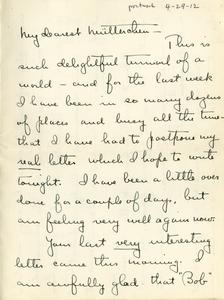 postmark 4-29-12
My dearest Mütterchen -
This is
such delightful turmoil of a
world - and for the last week
I have been in so many dozens
of places and busy all the time -
that I have had to postpone my
real letter which I hope to write
tonight. I have been a little over
done for a couple of days, but
am feeling very well again now.
Your last very interesting
letter came this morning. I
am awfully glad that "Bob"